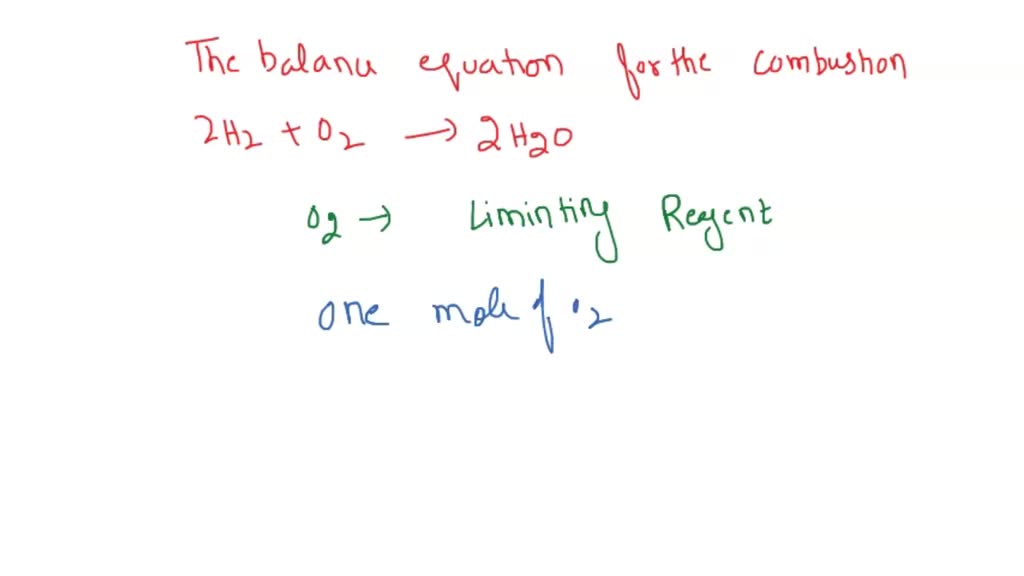 The balanu equation for the combushon
2H2 + O2 → 2H2O
O2 → Limintiry Regent
one mole of O2